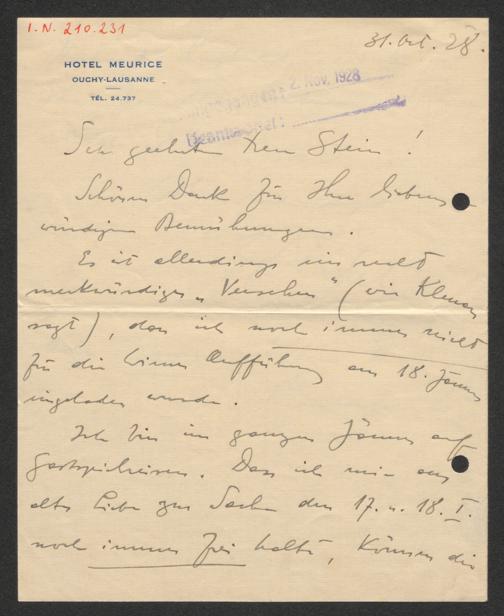 I.N. 210.231
31. Oct. 28.
HOTEL MEURICE
OUCHY-LAUSANNE
TÉL. 24.737
Eingegangen: 2. Nov. 1928
Beantwortet:
Sehr geehrter Herr Stein!
Schönen Dank für Ihre liebens-
würdigen Bemühungen.
Es ist allerdings ein recht
merkwürdiges "Versehen" (wie Klemens
sagt), dass ich noch immer nicht
für die Wiener Aufführung am 18. Jänner
eingeladen wurde.
Ich bin im ganzen Jänner auf
Gastspielreisen. Dass ich mir aus
alter Liebe zur Sache den 17. u. 18. I.
noch immer frei halte, können die